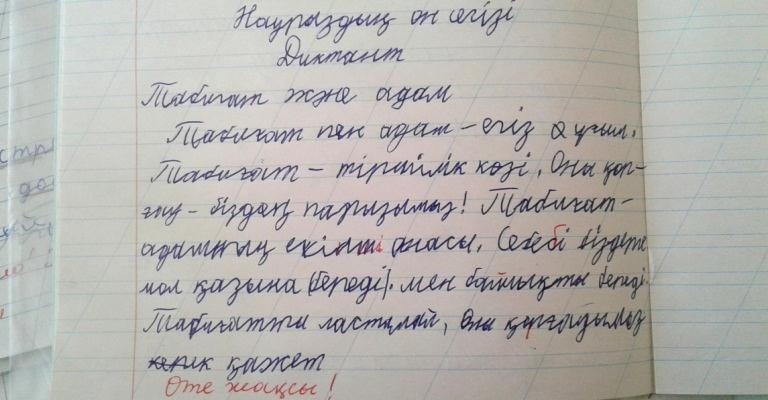 Наураздың он сегізі
Диктант
Табиғат және адам
Табиғат пен адам – егіз ұғым.
Табиғат – тіршілік көзі. Оны қор-
ғау – біздің парызымыз! Табиғат –
адамның екінші анасы. Себебі біздерге
мол қазына (береді). мен байлықты береді.
Табиғатты ластамай, оны қорғауымыз
керек қажет
Өте жақсы!